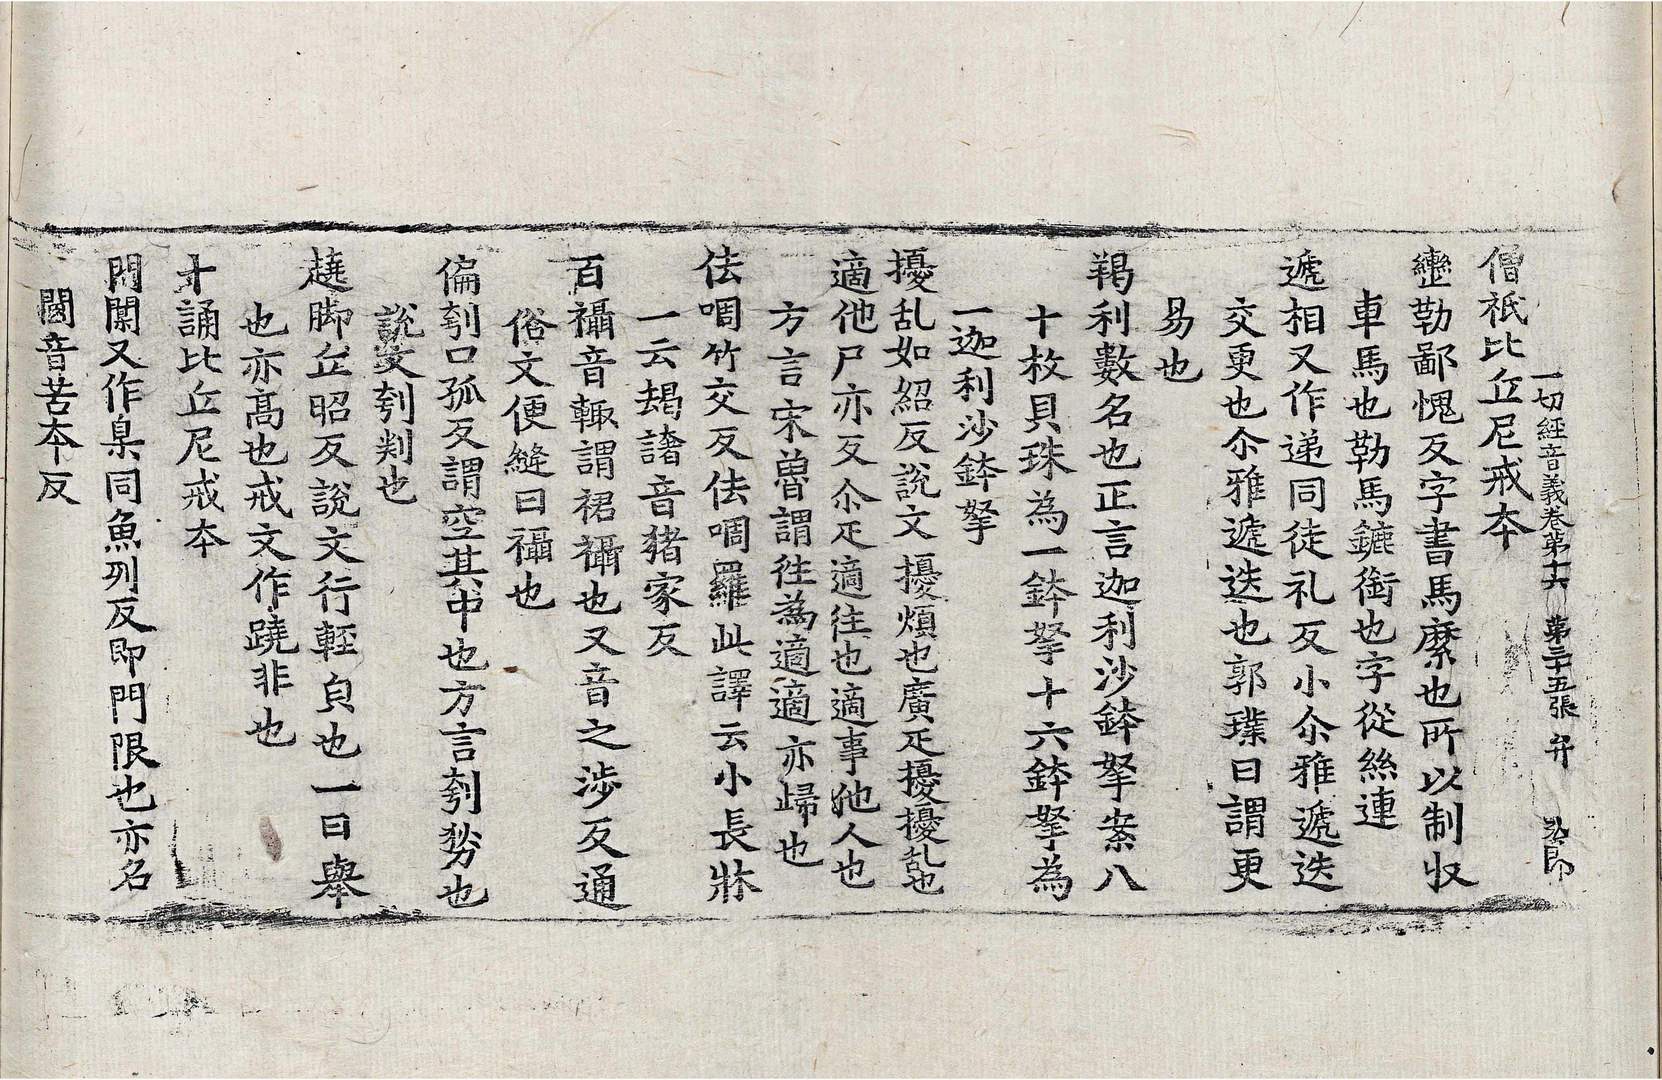 一切經音義卷第十六　第三十五張　弁
僧祇比丘尼戒本
轡勒鄙愧反字書馬縻也所以制收
車馬也勒馬鑣銜也字從絲連
遞相又作递同徒礼反小尒雅遞迭
交更也尒雅遞迭也郭璞曰謂更
易也
羯利數名也正言迦利沙鉢拏案八
十枚貝珠為一鉢拏十六鉢拏為
一迦利沙鉢拏
擾乱如紹反說文擾煩也廣疋擾擾乱也
適他尸亦反尒疋適往也適事他人也
方言宋魯謂往為適適亦歸也
佉啁竹交反佉啁羅此譯云小長牀
一云䠠䠧音猪家反
百襵音輒謂裙襵也又音之涉反通
俗文便縫曰襵也
偏刳口孤反謂空其中也方言刳剺也
說文刳判也
趬脚丘昭反說文行輕皃也一曰舉
也亦髙也戒文作蹺非也
十誦比丘尼戒本
門闑又作臬同魚列反即門限也亦名
閫音苦本反